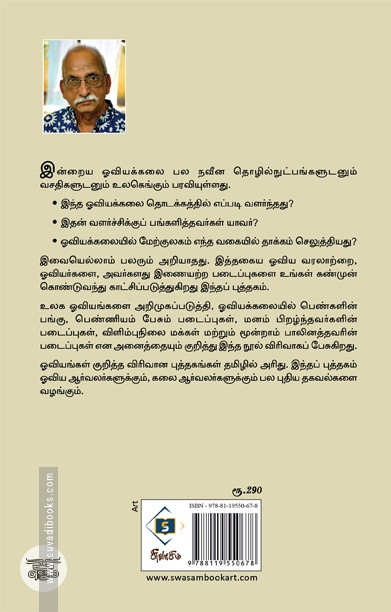 இன்றைய ஓவியக்கலை பல நவீன தொழில்நுட்பங்களுடனும்
வசதிகளுடனும் உலகெங்கும் பரவியுள்ளது.
• இந்த ஓவியக்கலை தொடக்கத்தில் எப்படி வளர்ந்தது?
• இதன் வளர்ச்சிக்குப் பங்களித்தவர்கள் யாவர்?
• ஓவியக்கலையில் மேற்குலகம் எந்த வகையில் தாக்கம் செலுத்தியது?
இவையெல்லாம் பலரும் அறியாதது. இத்தகைய ஓவிய வரலாற்றை,
ஓவியர்களை, அவர்களது இணையற்ற படைப்புகளை உங்கள் கண்முன்
கொண்டுவந்து காட்சிப்படுத்துகிறது இந்தப் புத்தகம்.
உலக ஓவியங்களை அறிமுகப்படுத்தி, ஓவியக்கலையில் பெண்களின்
பங்கு, பெண்ணியம் பேசும் படைப்புகள், மனம் பிறழ்ந்தவர்களின்
படைப்புகள், விளிம்புநிலை மக்கள் மற்றும் மூன்றாம் பாலினத்தவரின்
படைப்புகள் என அனைத்தையும் குறித்து இந்த நூல் விரிவாகப் பேசுகிறது.
ஓவியங்கள் குறித்த விரிவான புத்தகங்கள் தமிழில் அரிது. இந்தப் புத்தகம்
ஓவிய ஆர்வலர்களுக்கும், கலை ஆர்வலர்களுக்கும் பல புதிய தகவல்களை
வழங்கும்.
ரூ.290
Art
S
சுவாசம்
ISBN - 978-81-19550-67-8
9 788119 550678
www.swasambookart.com
suvadibooks.com